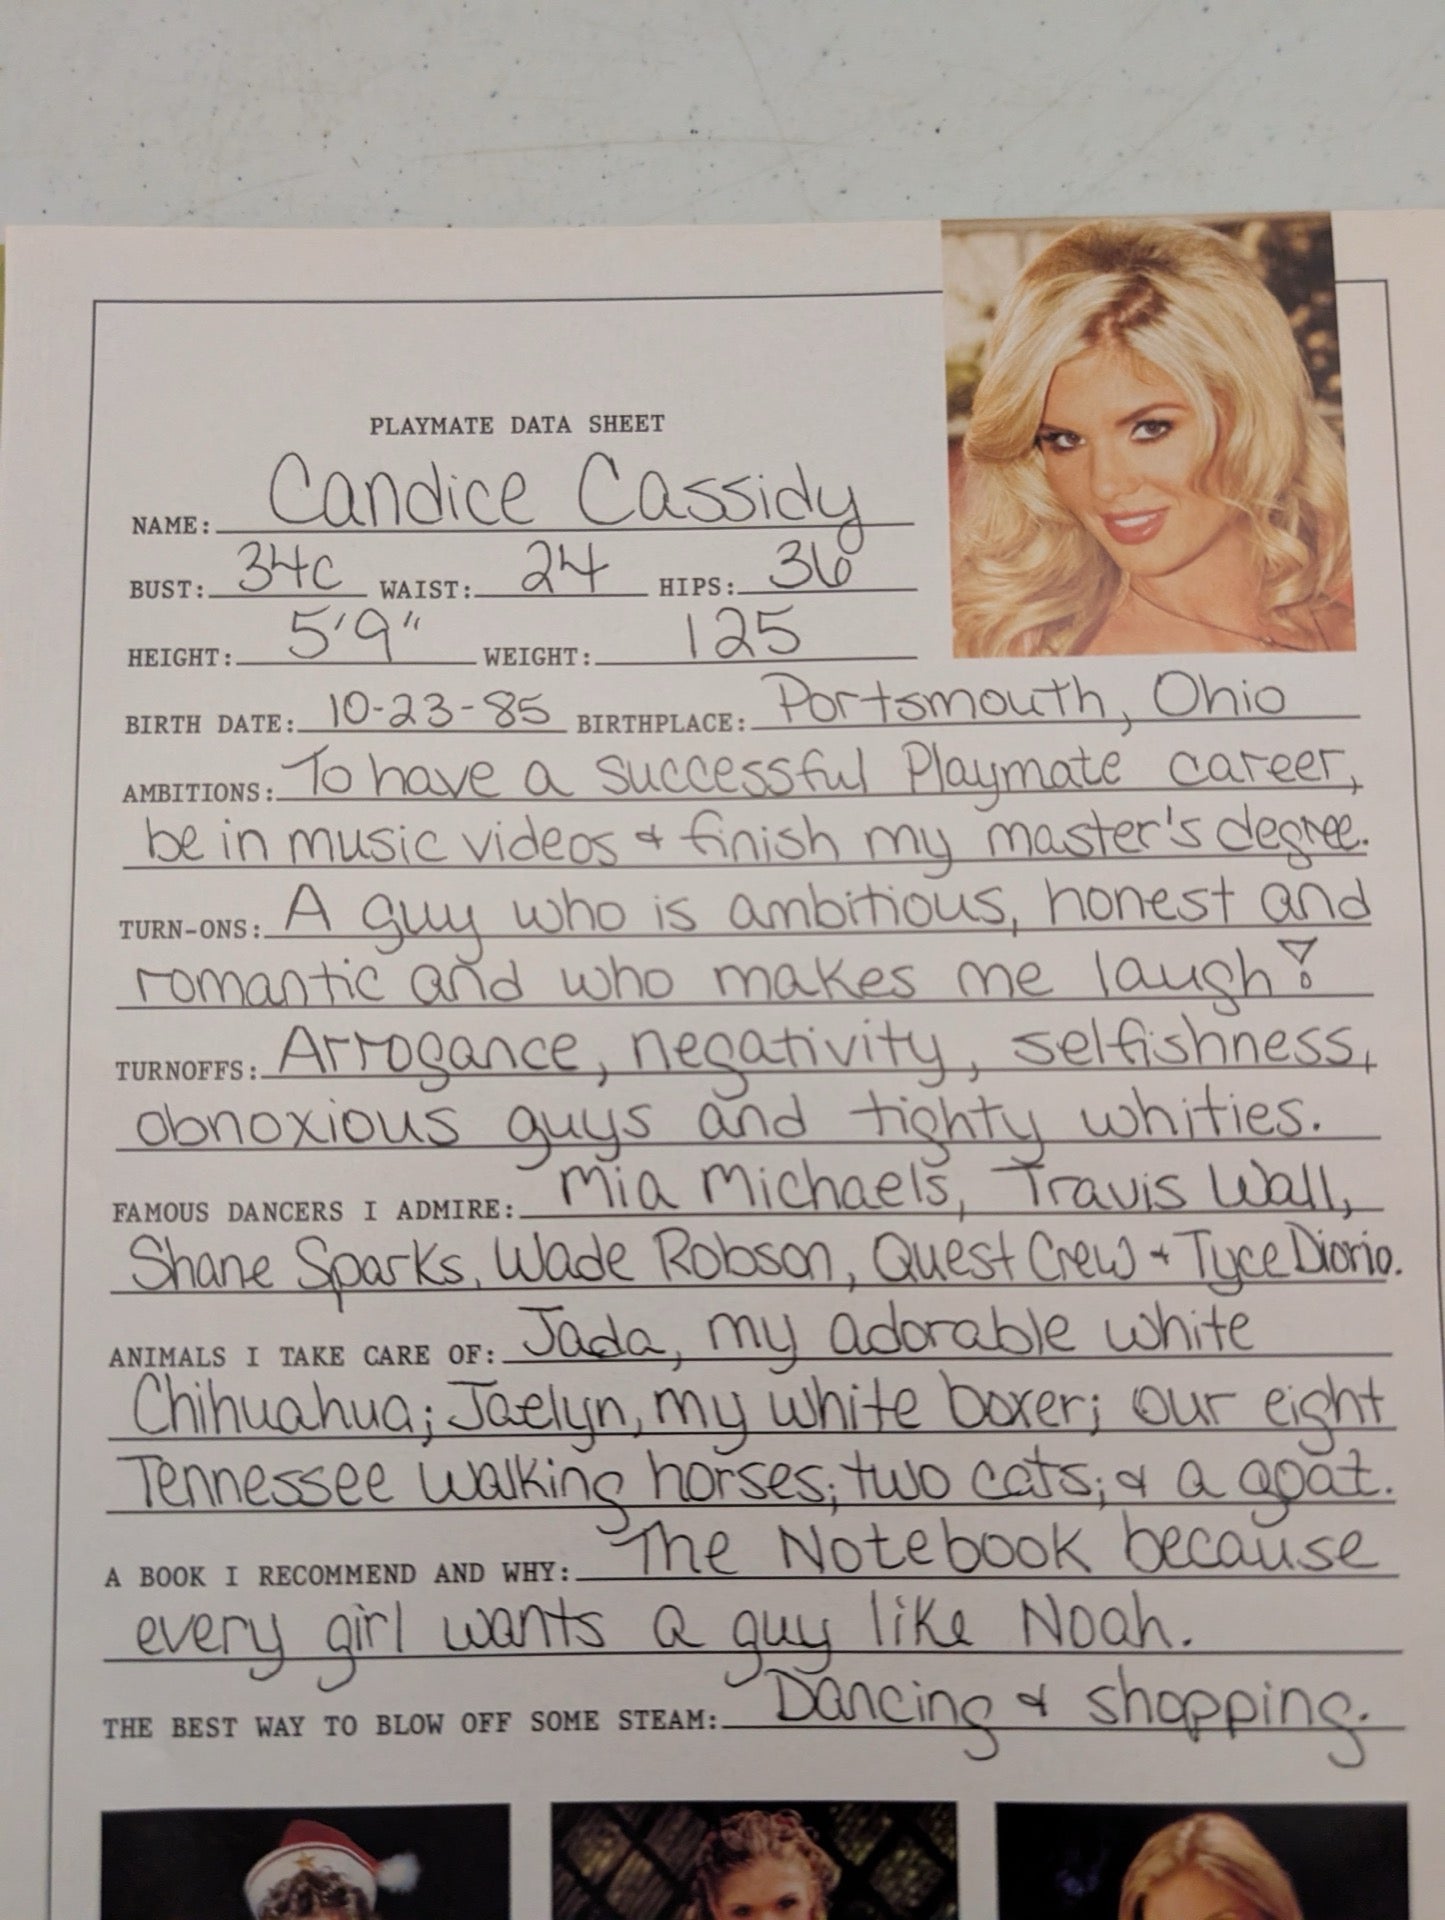 PLAYMATE DATA SHEET
NAME: Candice Cassidy
BUST: 34C WAIST: 24 HIPS: 36
HEIGHT: 5'9" WEIGHT: 125
BIRTH DATE: 10-23-85 BIRTHPLACE: Portsmouth, Ohio
AMBITIONS: To have a successful Playmate career,
be in music videos & finish my master's degree.
TURN-ONS: A guy who is ambitious, honest and
romantic and who makes me laugh!
TURNOFFS: Arrogance, negativity, selfishness,
obnoxious guys and tighty whities.
FAMOUS DANCERS I ADMIRE: Mia Michaels, Travis Wall,
Shane Sparks, Wade Robson, Quest Crew & Tyce Diorio.
ANIMALS I TAKE CARE OF: Jada, my adorable white
Chihuahua; Jaelyn, my white boxer; our eight
Tennessee walking horses; two cats; & a goat.
A BOOK I RECOMMEND AND WHY: The Notebook because
every girl wants a guy like Noah.
THE BEST WAY TO BLOW OFF SOME STEAM: Dancing & shopping.